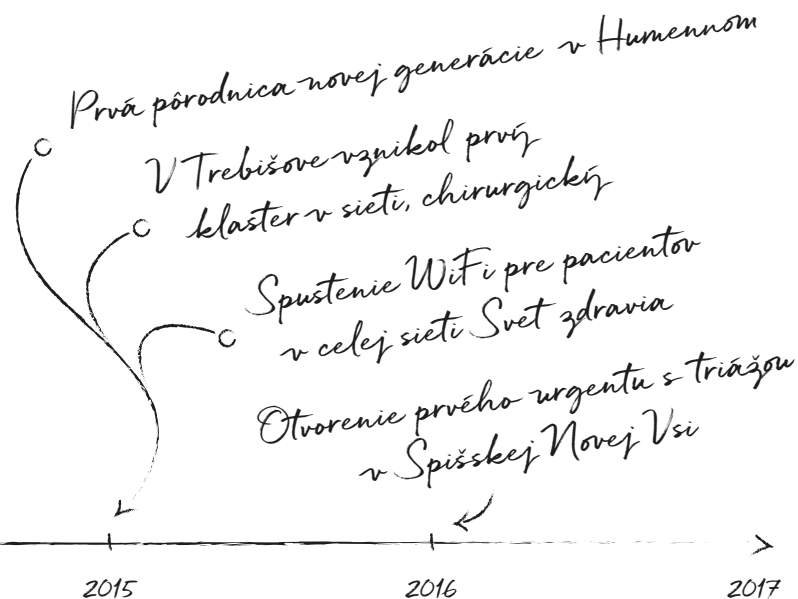 Prvá pôrodnica novej generácie v Humennom
V Trebišove vznikol prvý
klaster v sieti, chirurgický
Spustenie WiFi pre pacientov
v celej sieti Svet zdravia
Otvorenie prvého urgentu s triážou
v Spišskej Novej Vsi
2015
2016
2017